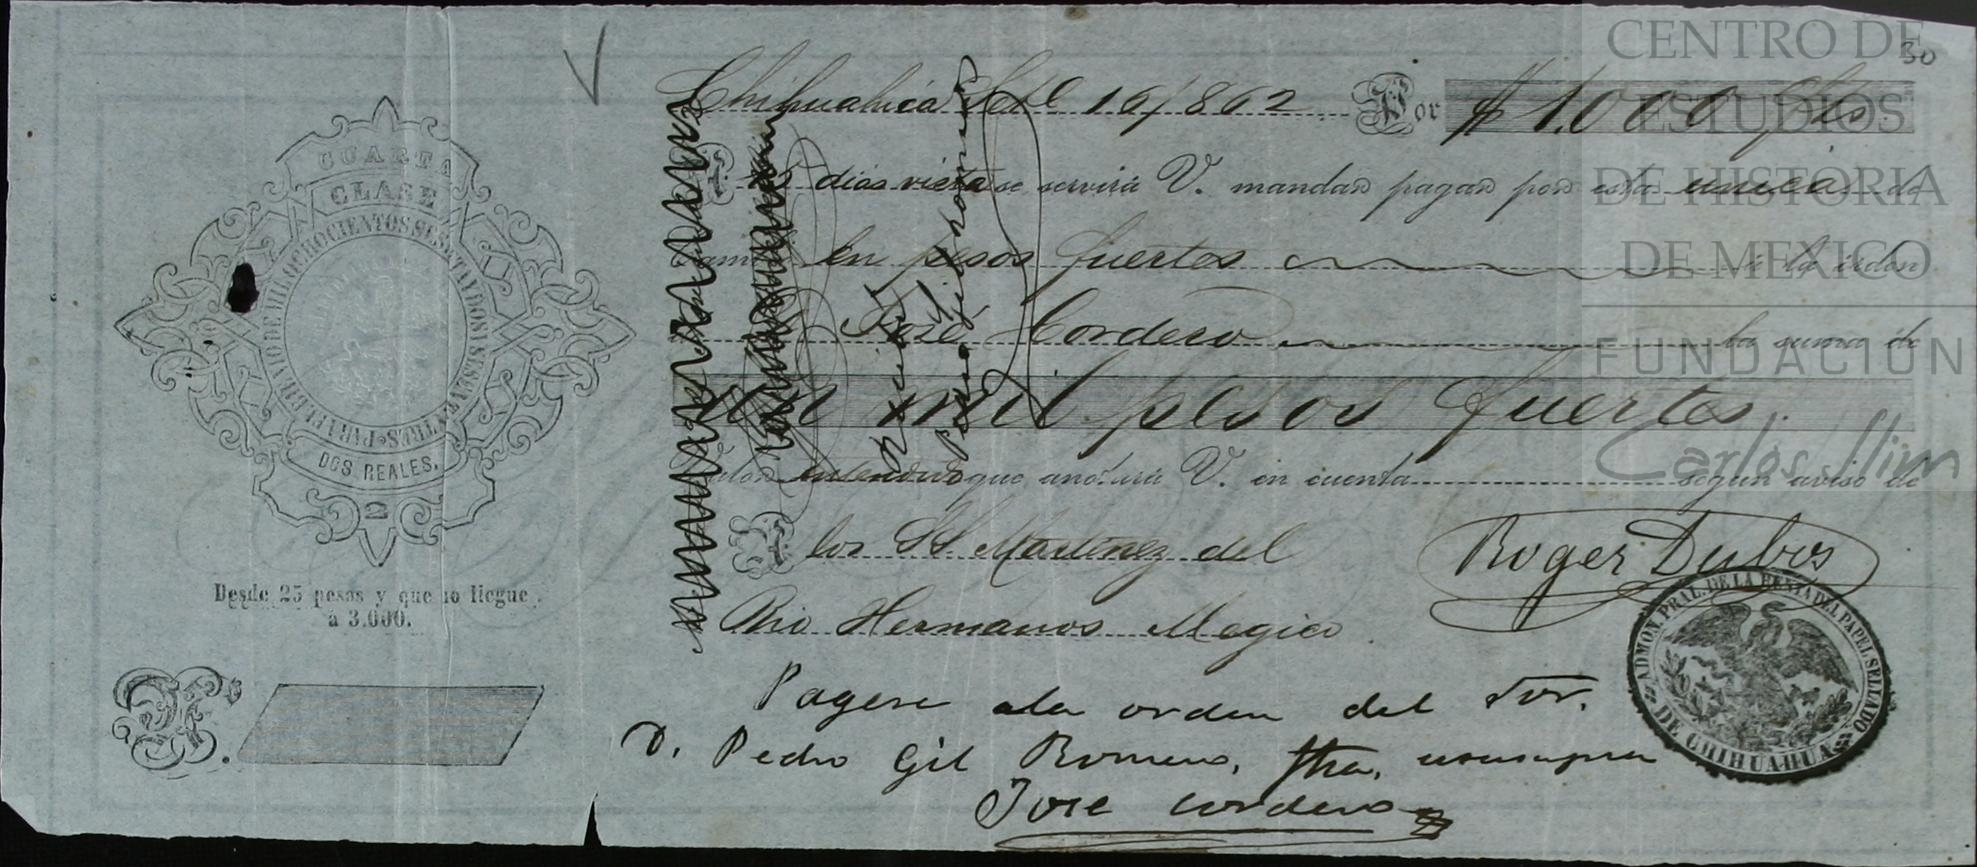 CENTRO DE
ESTUDIOS
DE HISTORIA
DE MEXICO
FUNDACION
Carlos Slim
30
CUARTA
CLASE
PARA EL BIENIO DE MIL OCHOCIENTOS SESENTA Y DOS Y SESENTA Y TRES
DOS REALES.
2
Desde 25 pesos y que no llegue
a 3.000.
Chihuahua Set.e 16/862 Por $1.000 fts
dias vista se servirá V. mandar pagar por esta unica de
en pesos fuertes á la órden
José Cordero la suma de
un mil pesos fuertes.
Valor entendido que anotará V. en cuenta según aviso de
los SS. Martinez del Roger Dubos
Rio Hermanos Megico
Pagese a la orden del Sor.
D. Pedro Gil Romero,
José Cordero
Recibí
Pedro Gil Romero
ADMON. PRAL. DE LA RENTA DEL PAPEL SELLADO
DE CHIHUAHUA